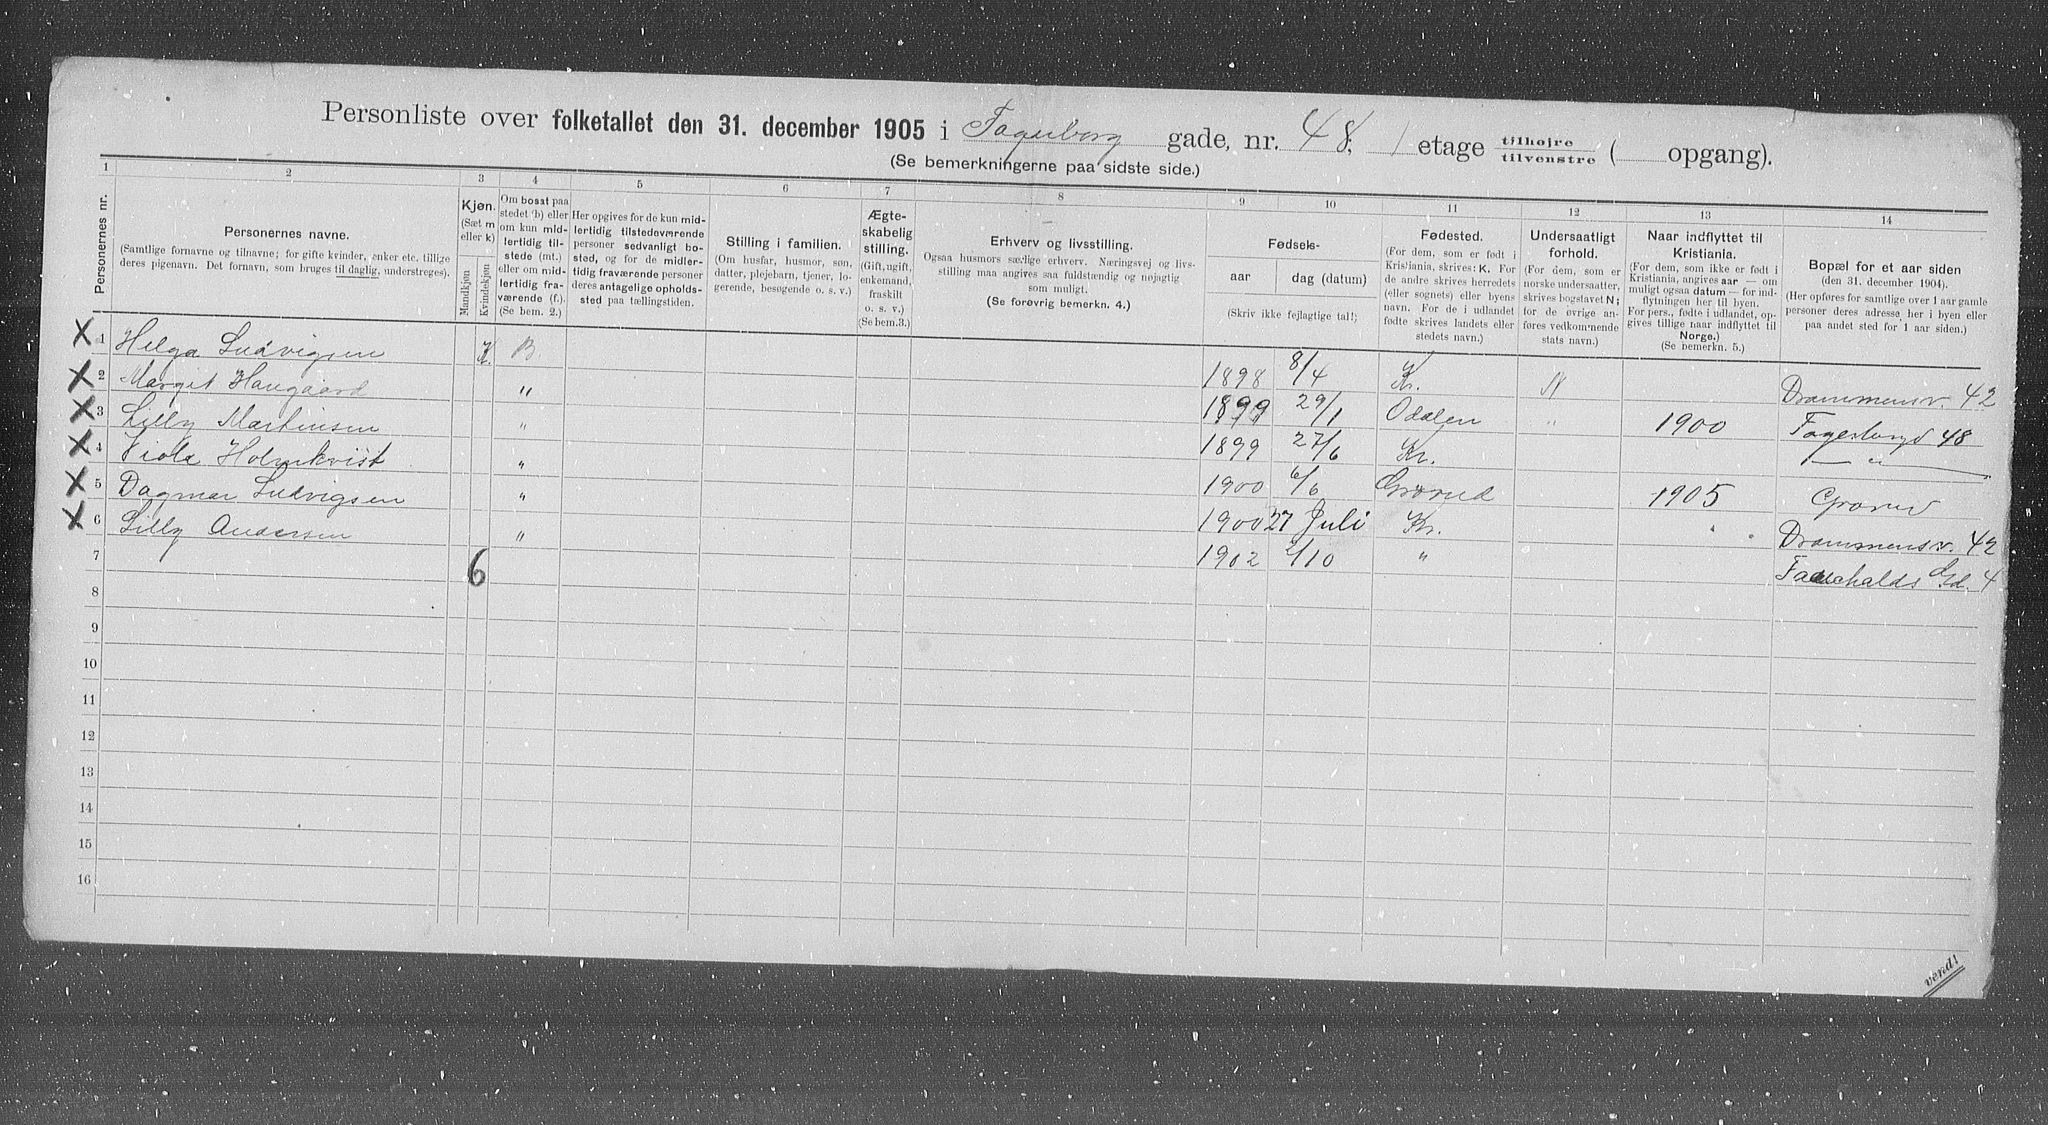 Personliste over folketallet den 31. december 1905 i Fagerborg gade, nr. 48, 1 etage tilhøjre tilvenstre ( opgang).
(Se bemerkningerne paa sidste side.)
1 2 3 4 5 6 7 8 9 10 11 12 13 14
Personernes nr.
Personernes navne.
(Samtlige fornavne og tilnavne; for gifte kvinder, enker etc. tillige deres pigenavn. Det fornavn, som bruges til daglig, understreges).
Kjøn.
(Sæt m eller k)
Mandkjøn
Kvindekjøn
Om bosat paa stedet (b) eller om kun midlertidig tilstede (mt.) eller om midlertidig fraværende (f.). (Se bem. 2.)
Her opgives for de kun midlertidig tilstedeværende personer sedvanligt bosted, og for de midlertidig fraværende personer deres antagelige opholdssted paa tællingstiden.
Stilling i familien.
(Om husfar, husmor, søn, datter, plejebarn, tjener, logerende, besøgende o. s. v.)
Ægteskabelig stilling.
(Gift, ugift, enkemand, fraskilt o. s. v.)
(Se bem. 3.)
Erhverv og livsstilling.
Ogsaa husmors særlige erhverv. Næringsvej og livsstilling maa angives saa fuldstændig og nøjagtig som muligt.
(Se forøvrig bemerkn. 4.)
Fødsels-
aar
dag (datum)
(Skriv ikke fejlagtige tal!)
Fødested.
(For dem, som er født i Kristiania, skrives: K. For de andre skrives herredets (eller sognets) eller byens navn. For de i udlandet fødte skrives landets eller stedets navn.)
Undersaatligt forhold.
(For dem, som er norske undersaatter, skrives bogstavet N; for de øvrige anføres vedkommende stats navn.)
Naar indflyttet til Kristiania.
(For dem, som ikke er født i Kristiania, angives aar — om muligt ogsaa datum — for indflytningen her til byen. For pers., fødte i udlandet, opgives tillige naar indflyttet til Norge.)
(Se bemerkn. 5.)
Bopæl for et aar siden
(den 31. december 1904).
(Her opføres for samtlige over 1 aar gamle personer deres adresse her i byen eller paa andet sted for 1 aar siden.)
X 1 Helga Ludvigsen k B. 1898 8/4 Kr. N Drammensv. 42
X 2 Margit Haugaard " 1899 29/1 Odalen " 1900 Fagerborgd 48
X 3 Lilly Martinsen " 1899 27/6 Kr. — " —
X 4 Viola Holmkvist " 1900 6/6 Grorud 1905 Grorud
X 5 Dagmar Ludvigsen " 1900 27 Juli Kr. Drammensv. 42
X 6 Lilly Andersen " 1902 2/10 " Gd. 4
7 6
8
9
10
11
12
13
14
15
16
vend!